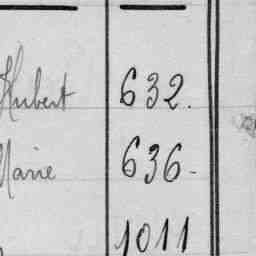 Hubert 632.
Marie 636.
1011